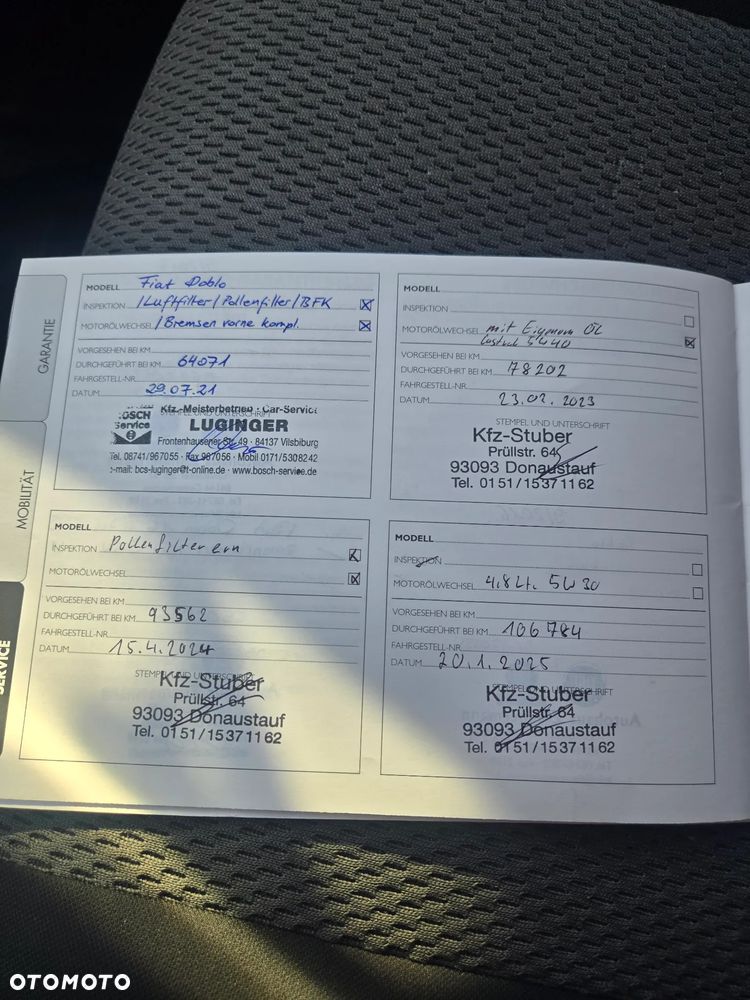 GARANTIE
MOBILITÄT
SERVICE
MODELL Fiat Doblo
INSPEKTION /Luftfilter/Pollenfilter/BFK
MOTORÖLWECHSEL /Bremsen vorne kompl.
VORGESEHEN BEI KM
DURCHGEFÜHRT BEI KM 64071
FAHRGESTELL-NR.
DATUM 29.07.21
STEMPEL UND UNTERSCHRIFT
Kfz-Meisterbetrieb · Car-Service
BOSCH
Service
LUGINGER
Frontenhausener Str. 49 · 84137 Vilsbiburg
Tel. 08741/967055 · Fax 967056 · Mobil 0171/5308242
e-mail: bcs-luginger@t-online.de · www.bosch-service.de
MODELL
INSPEKTION
MOTORÖLWECHSEL mit Eigenem ÖL
5W40
VORGESEHEN BEI KM
DURCHGEFÜHRT BEI KM 78202
FAHRGESTELL-NR.
DATUM 23.02.2023
STEMPEL UND UNTERSCHRIFT
Kfz-Stuber
Prüllstr. 64
93093 Donaustauf
Tel. 01 51 / 15 37 11 62
MODELL
INSPEKTION Pollenfilter ern
MOTORÖLWECHSEL
VORGESEHEN BEI KM
DURCHGEFÜHRT BEI KM 93562
FAHRGESTELL-NR.
DATUM 15.4.2024
STEMPEL UND UNTERSCHRIFT
Kfz-Stuber
Prüllstr. 64
93093 Donaustauf
Tel. 01 51 / 15 37 11 62
MODELL
INSPEKTION
MOTORÖLWECHSEL 4.8 Lt. 5W30
VORGESEHEN BEI KM
DURCHGEFÜHRT BEI KM 106784
FAHRGESTELL-NR.
DATUM 20.1.2025
STEMPEL UND UNTERSCHRIFT
Kfz-Stuber
Prüllstr. 64
93093 Donaustauf
Tel. 01 51 / 15 37 11 62
OTOMOTO